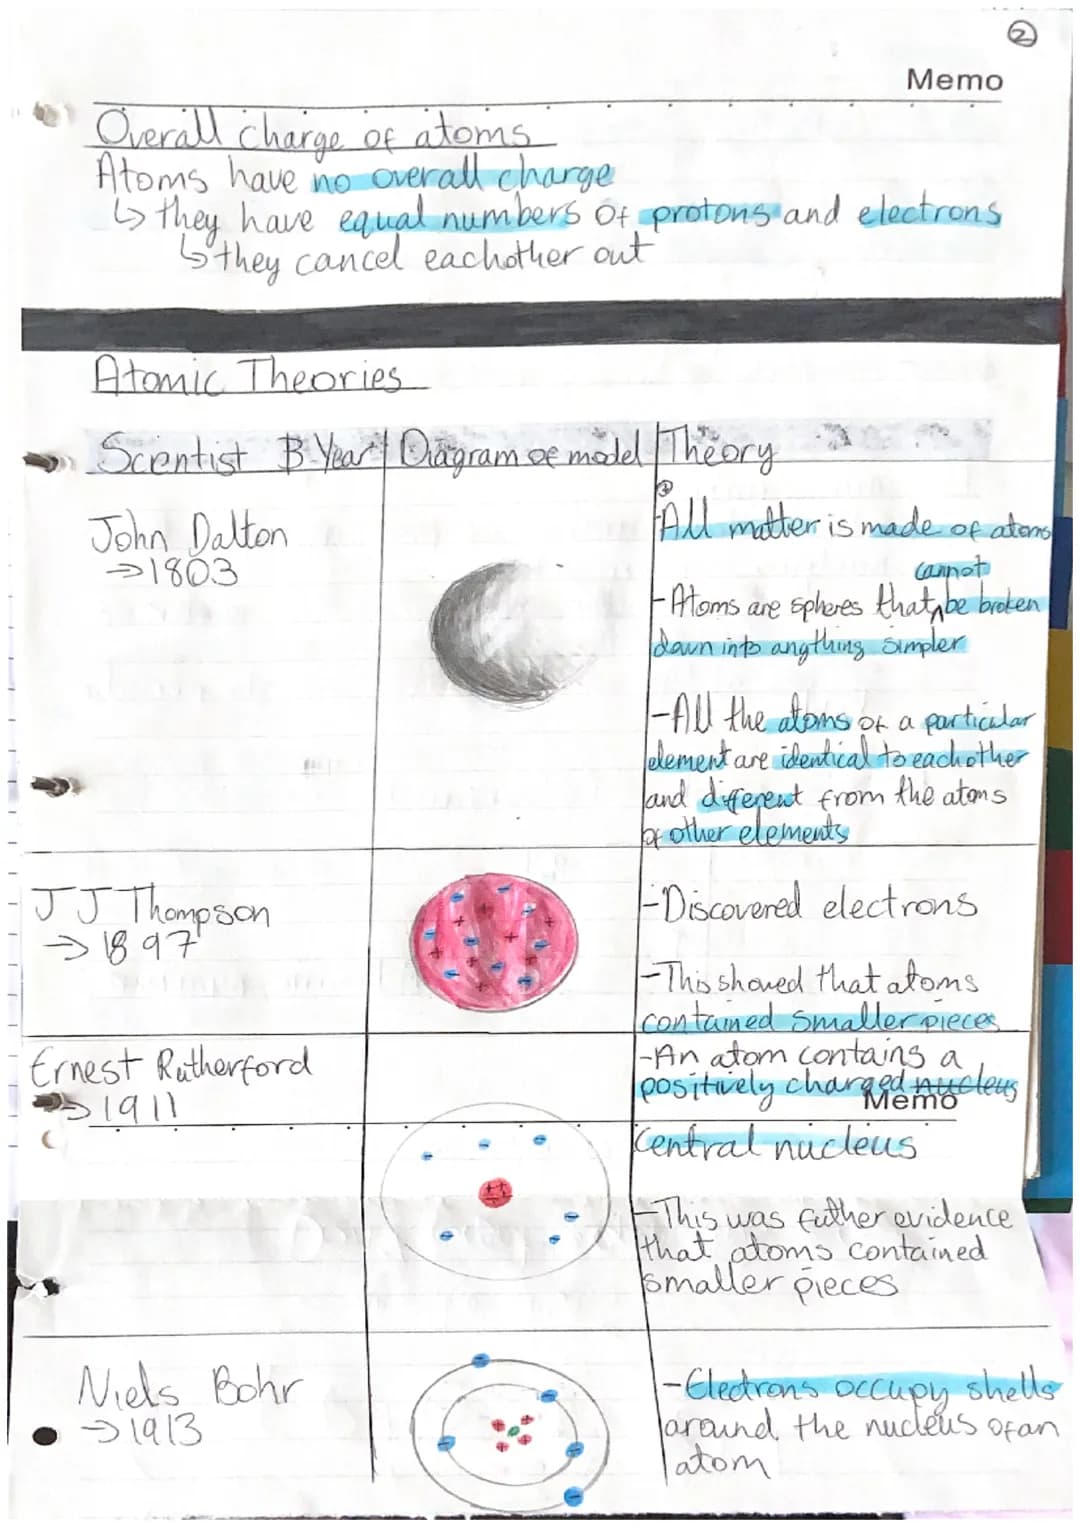 2
Memo
Overall charge of atoms
Atoms have no overall charge
↳ they have equal numbers of protons and electrons
↳ they cancel eachother out
Atomic Theories
Scientist & Year
Diagram of model
Theory
John Dalton
→1803
All matter is made of atoms
cannot
-Atoms are spheres that ^ be broken
down into anything simpler
-All the atoms of a particular
element are identical to eachother
and different from the atoms
of other elements
J J Thompson
→ 1897
-Discovered electrons
-This showed that atoms
contained smaller pieces
Ernest Rutherford
→1911
-An atom contains a
positively charged nucleus
Memo
central nucleus
-This was futher evidence
that atoms contained
smaller pieces
Niels Bohr
→1913
-Electrons occupy shells
around the nucleus of an
atom